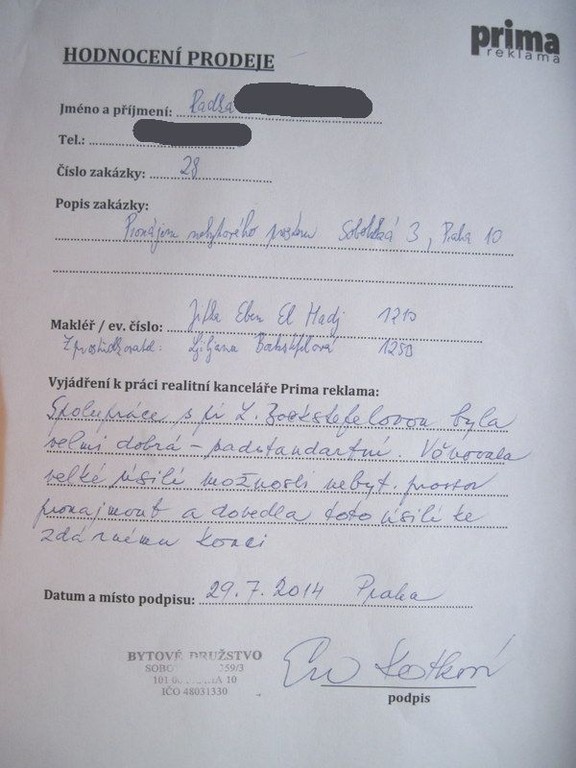 prima
reklama
HODNOCENÍ PRODEJE
Jméno a příjmení: Radka
Tel.:
Číslo zakázky: 28
Popis zakázky:
Pronájem nebytového prostoru Sobotecká 3, Praha 10
Makléř / ev. číslo: Jitka Eben El Hadj 1210
Zprostředkovatel: Liljana 1250
Vyjádření k práci realitní kanceláře Prima reklama:
Spolupráce s pí L. Bookstefelovou byla
velmi dobrá - nadstandartní. Věnovala
velké úsilí možnosti nebyt. prostor
pronajmout a dovedla toto úsilí ke
zdárnému konci
Datum a místo podpisu: 29.7.2014 Praha
BYTOVÉ DRUŽSTVO
SOBO 959/3
101 A 10
IČO 48031330
podpis